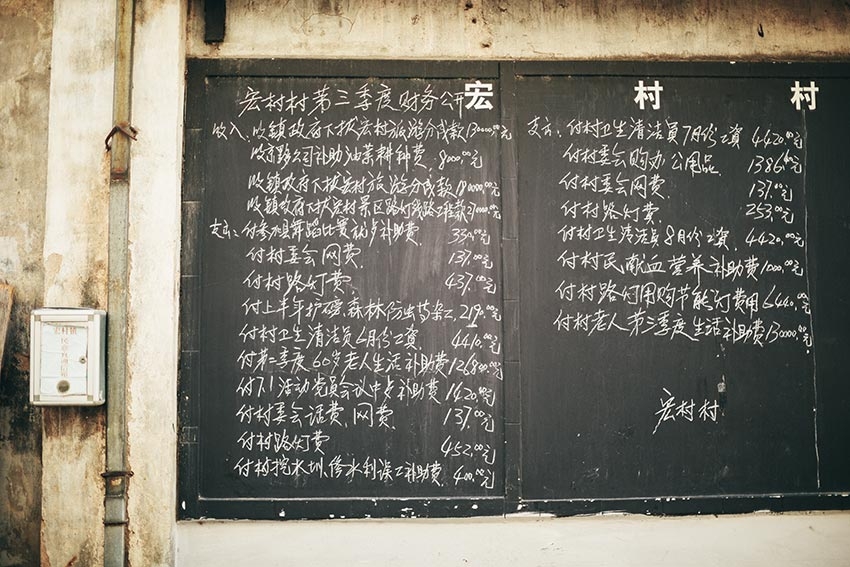 宏村村
宏村村第三季度财务公开
收入、收镇政府下拨宏村旅游分成款130000.00元
收京路公司补助油菜耕种费 8000.00元
收镇政府下拨宏村旅游分成款 180000.00元
收镇政府下拨宏村景区路灯线路工程款27000.00元
支出、付 舞蹈比赛 补助费 330.00元
付村委会网费 137.00元
付村路灯费 437.00元
付上半年护 森林防虫药杂工 219.00元
付村卫生清洁员6月份工资 4410.00元
付第二季度60岁老人生活补助费126800.00元
付7.1活动党员会议中歺补助费 1420.00元
付村委会话费、网费 137.00元
付村路灯费 452.00元
付村挖水圳、修水利误工补助费 400.00元
支出、付村卫生清洁员7月份工资 4420.00元
付村委会购办公用品 1386.00元
付村委会网费 137.00元
付村路灯费 253.00元
付村卫生清洁员8月份工资 4420.00元
付村民献血营养补助费1000.00元
付村路灯用购节能灯费用6440.00元
付村老人第三季度生活补助费130000.00元
宏村村